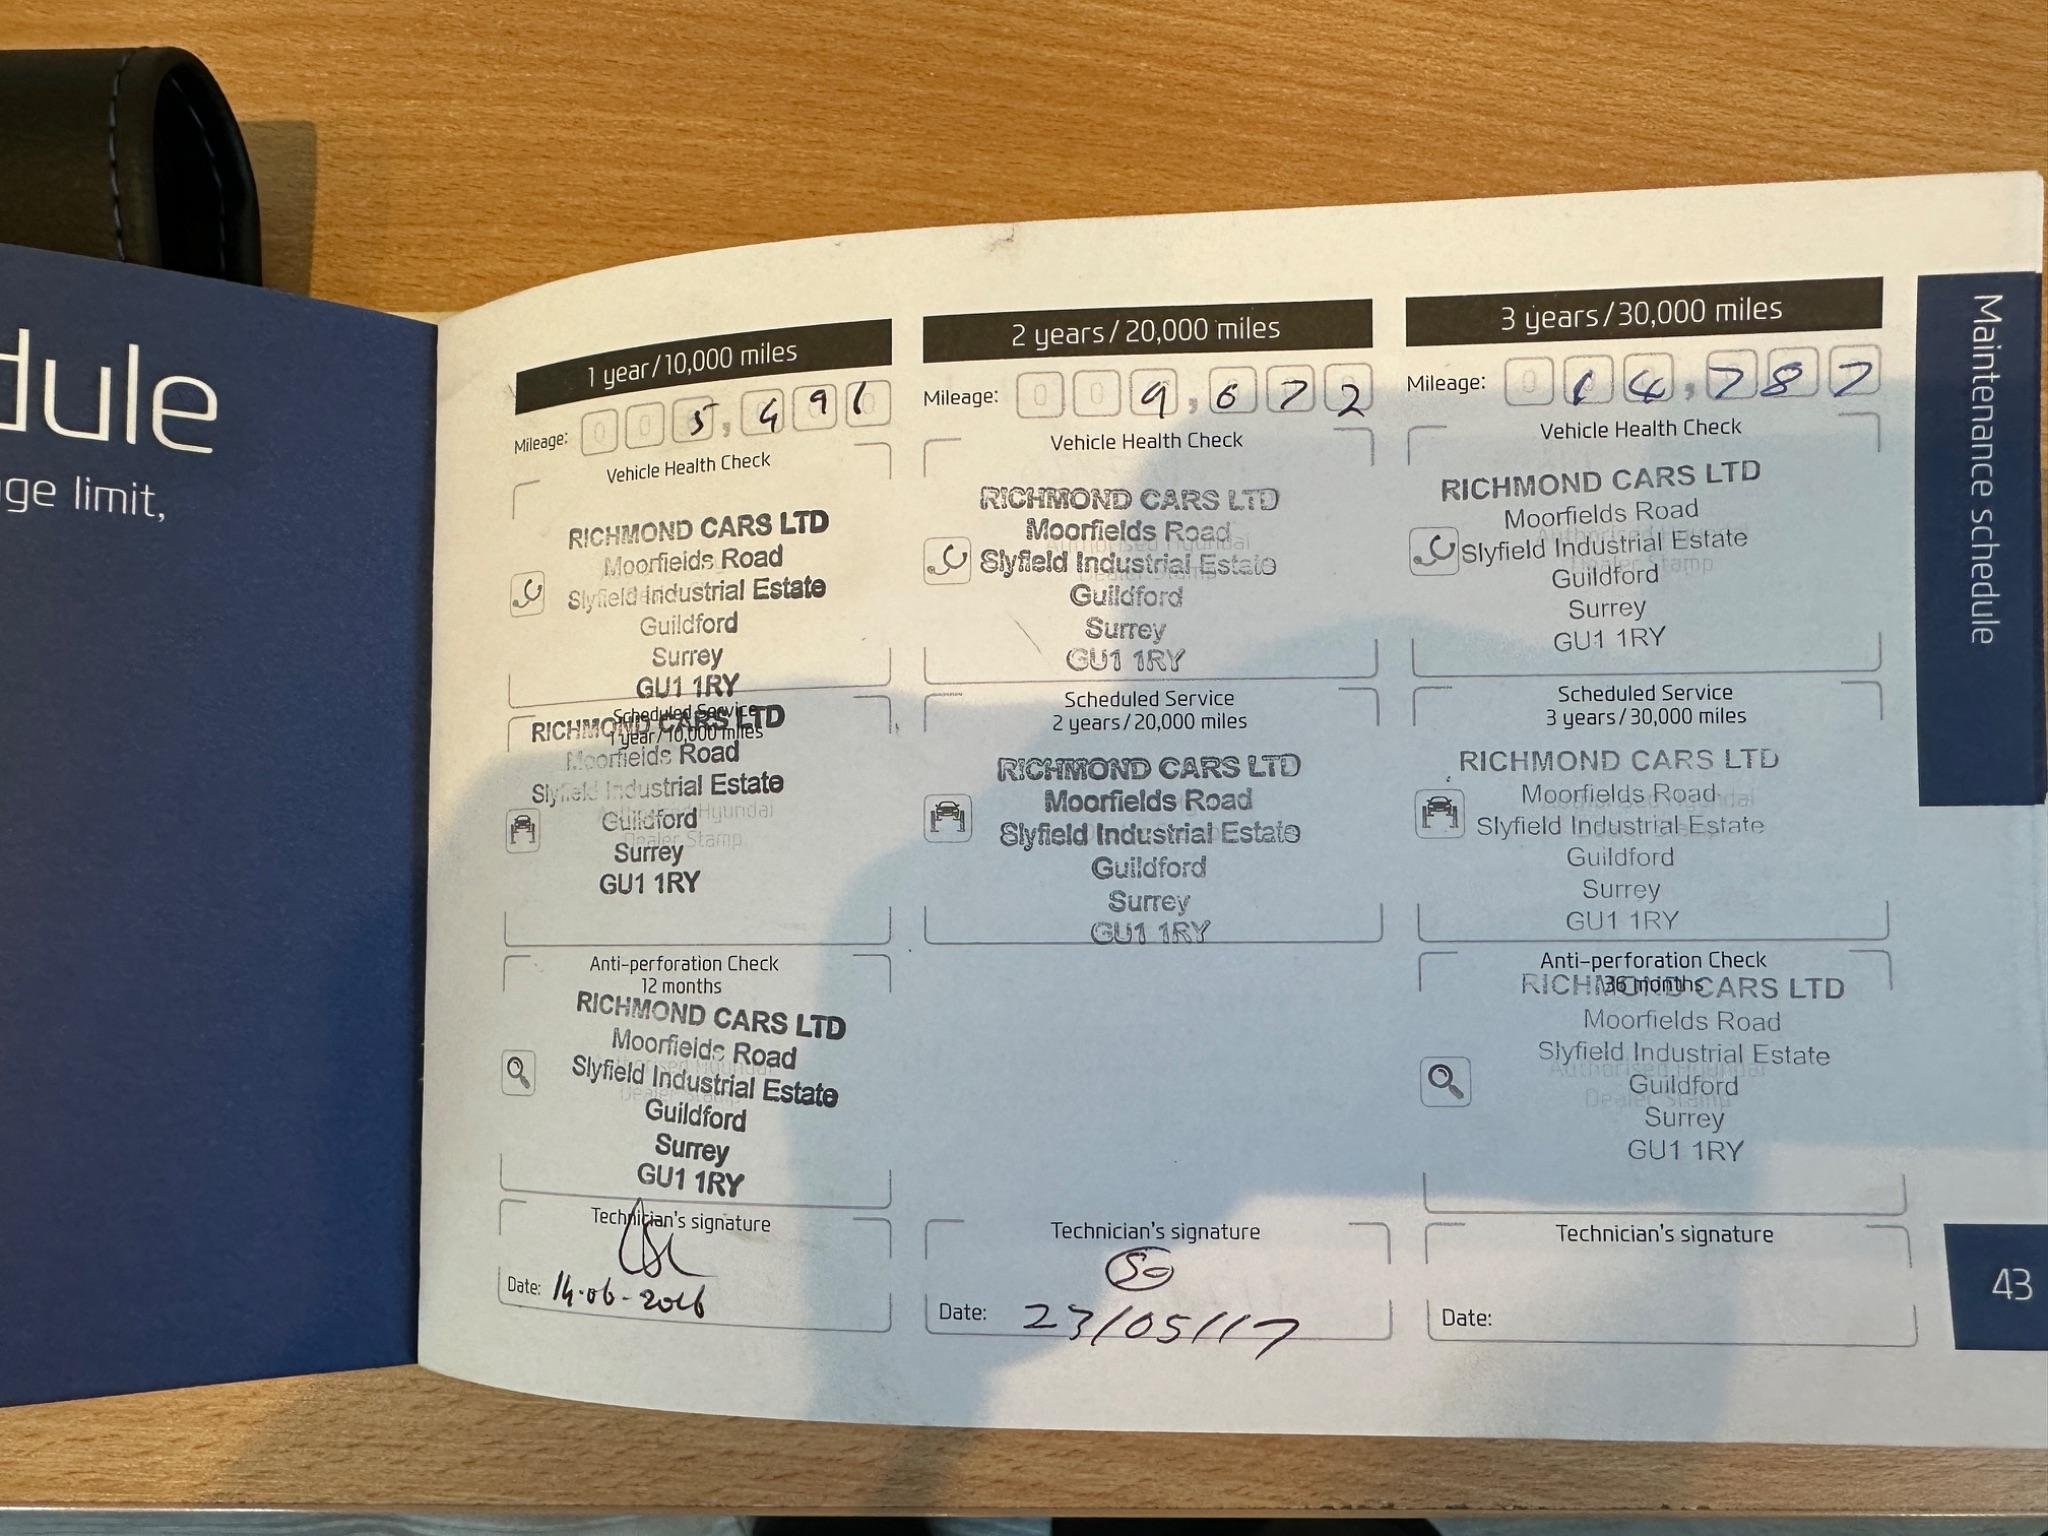 dule
ge limit,
1 year/10,000 miles
Mileage: 005,491
Vehicle Health Check
RICHMOND CARS LTD
Moorfields Road
Slyfield Industrial Estate
Guildford
Surrey
GU1 1RY
Scheduled Service
1 year/10,000 miles
RICHMOND CARS LTD
Moorfields Road
Slyfield Industrial Estate
Authorised Hyundai
Dealer Stamp
Guildford
Surrey
GU1 1RY
Anti-perforation Check
12 months
RICHMOND CARS LTD
Moorfields Road
Slyfield Industrial Estate
Authorised Hyundai
Dealer Stamp
Guildford
Surrey
GU1 1RY
Technician's signature
Date: 14-06-2016
2 years/20,000 miles
Mileage: 009,672
Vehicle Health Check
RICHMOND CARS LTD
Moorfields Road
Authorised Hyundai
Slyfield Industrial Estate
Dealer Stamp
Guildford
Surrey
GU1 1RY
Scheduled Service
2 years/20,000 miles
RICHMOND CARS LTD
Moorfields Road
Slyfield Industrial Estate
Guildford
Surrey
GU1 1RY
Technician's signature
Date: 23/05/17
3 years/30,000 miles
Mileage: 014,787
Vehicle Health Check
RICHMOND CARS LTD
Moorfields Road
Authorised Hyundai
Slyfield Industrial Estate
Dealer Stamp
Guildford
Surrey
GU1 1RY
Scheduled Service
3 years/30,000 miles
RICHMOND CARS LTD
Moorfields Road
Slyfield Industrial Estate
Guildford
Surrey
GU1 1RY
Anti-perforation Check
36 months
RICHMOND CARS LTD
Moorfields Road
Slyfield Industrial Estate
Authorised Hyundai
Guildford
Dealer Stamp
Surrey
GU1 1RY
Technician's signature
Date:
Maintenance schedule
43